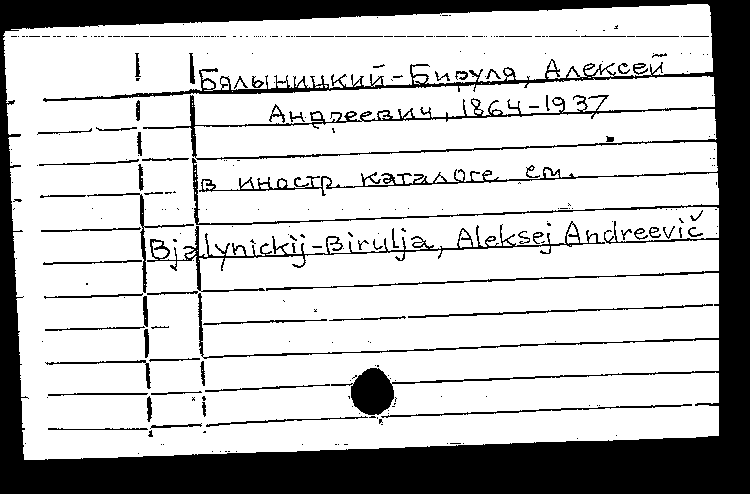 Бялыницкий-Бируля, Алексей
Андреевич, 1864-1937
в иностр. каталоге см.
Bjalynickij-Birulja, Aleksej Andreevič